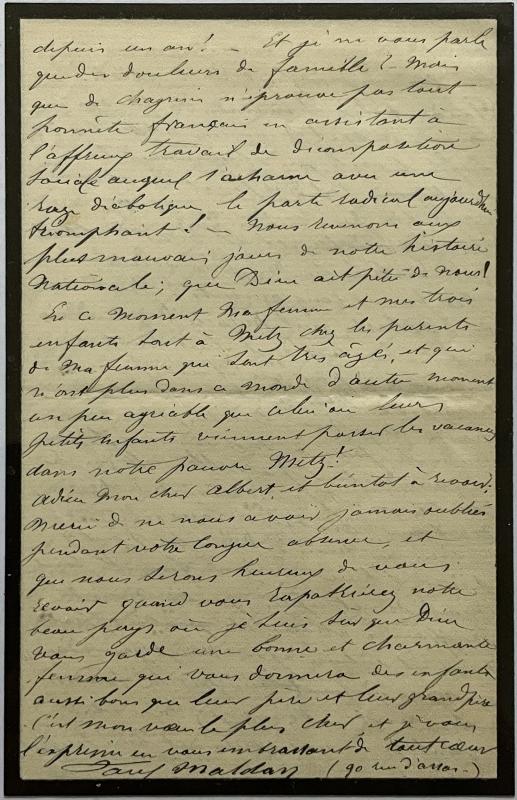 depuis un an! – Et je ne vous parle
que des douleurs de famille? Mais
que de chagrins n'éprouve pas tout
honnête français en assistant à
l'affreux travail de décomposition
sociale auquel s'acharne avec une
rage diabolique le parti radical aujourd'hui
triomphant! – Nous revenons aux
plus mauvais jours de notre histoire
Nationale; que Dieu ait pitié de nous!
En ce moment ma femme et mes trois
enfants sont à Metz chez les parents
de ma femme qui sont très âgés, et qui
n'ont plus dans ce monde d'autre moment
un peu agréable que celui où leurs
petits enfants viennent passer les vacances
dans notre pauvre Metz!
Adieu mon cher Albert, et bientôt à revoir,
Merci de ne nous avoir jamais oubliés
pendant votre longue absence, et
que nous serons heureux de vous
revoir quand vous rapatrierez notre
beau pays où je suis sûr que Dieu
vous garde une bonne et charmante
femme qui vous donnera des enfants
aussi bons que leur père et leur grand père
c'est mon vœu le plus cher et je vous
l'exprime en vous embrassant de tout cœur
Paul Maldan (90 rue d'assas-)